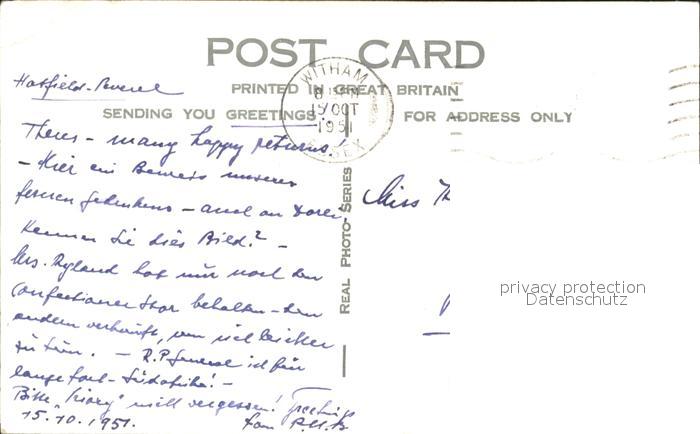 POST CARD
PRINTED IN GREAT BRITAIN
SENDING YOU GREETINGS
FOR ADDRESS ONLY
WITHAM
15 OCT
1951
ESSEX
REAL PHOTO-SERIES
Hatfield-Peverel
Theres - many happy returns!
- Hier ein Beweis unseres
fernen Gedenkens - auch an Dorle
Kennen Sie dies Bild? -
Mrs. Ryland hat nur noch den
Confectioner behalten - den
andern verkauft, um leichter
zu tun. - R.P. General ist für
lange fort - Südafrika! -
Bitte nicht vergessen! Greetings
15.10.1951. from
Miss
privacy protection
Datenschutz